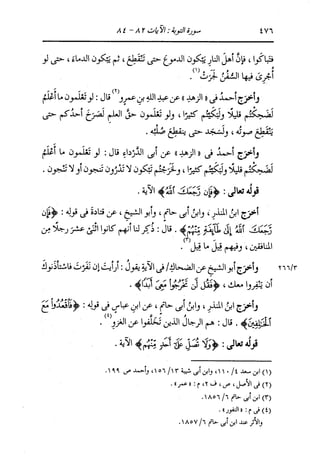 ٤٧٦ سورة التوبة : الآيات ٨٢ - ٨٤
فتباكوا ، فإن أهل النار يبكون الدموع حتى تنقطع ، ثم يبكون الدماء ، حتى لو
أُجرى فيها السفن لجرت(١) .
وأخرج أحمد فى « الزهد » عن عبد الله بن عمرو(٢) قال : لو تعلمون ما أعلم
لضحكتم قليلًا ولبكيتم كثيرًا ، ولو تعلمون حق العلم لصرخ أحدكم حتى
ينقطع صوته ، ولسجد حتى ينقطع صلبه .
وأخرج أحمد فى « الزهد » عن أبى الدرداء قال : لو تعلمون ما أعلم
لضحكتم قليلًا ولبكيتم كثيرًا ، ولخرجتم تبكون لا تدرون تنجون أو لا تنجون .
قوله تعالى : ﴿فإن رجعك الله﴾ الآية .
أخرج ابن المنذر ، وابن أبى حاتم ، وأبو الشيخ ، عن قتادة فى قوله : ﴿فإن
رجعك الله إلى طائفة منهم﴾ . قال : ذُكر لنا أنهم كانوا اثنى عشر رجلًا من
المنافقين ، وفيهم قيل ما قيل(٣) .
٢٦٦/٣ وأخرج أبو الشيخ عن الضحاك / فى الآية يقول : أرأيت إن نفرت فاستأذنوك
أن ينفروا معك ، ﴿فقل لن تخرجوا معى أبدا﴾ .
وأخرج ابن المنذر ، وابن أبى حاتم ، عن ابن عباس فى قوله : ﴿فاقعدوا مع
الخالفين﴾ . قال : هم الرجال الذين تخلفوا عن الغزو(٤) .
قوله تعالى : ﴿ولا تصل على أحد منهم﴾ الآية .
(١) ابن سعد ٤/ ١١٠، وابن أبى شيبة ١٣/ ١٥٦، وأحمد ص ١٩٩.
(٢) فى الأصل ، ص ، ف ٢، م : « عمر » .
(٣) ابن أبى حاتم ٦/ ١٨٥٦.
(٤) فى م : « النفور » .
والأثر عند ابن أبى حاتم ٦/ ١٨٥٧.